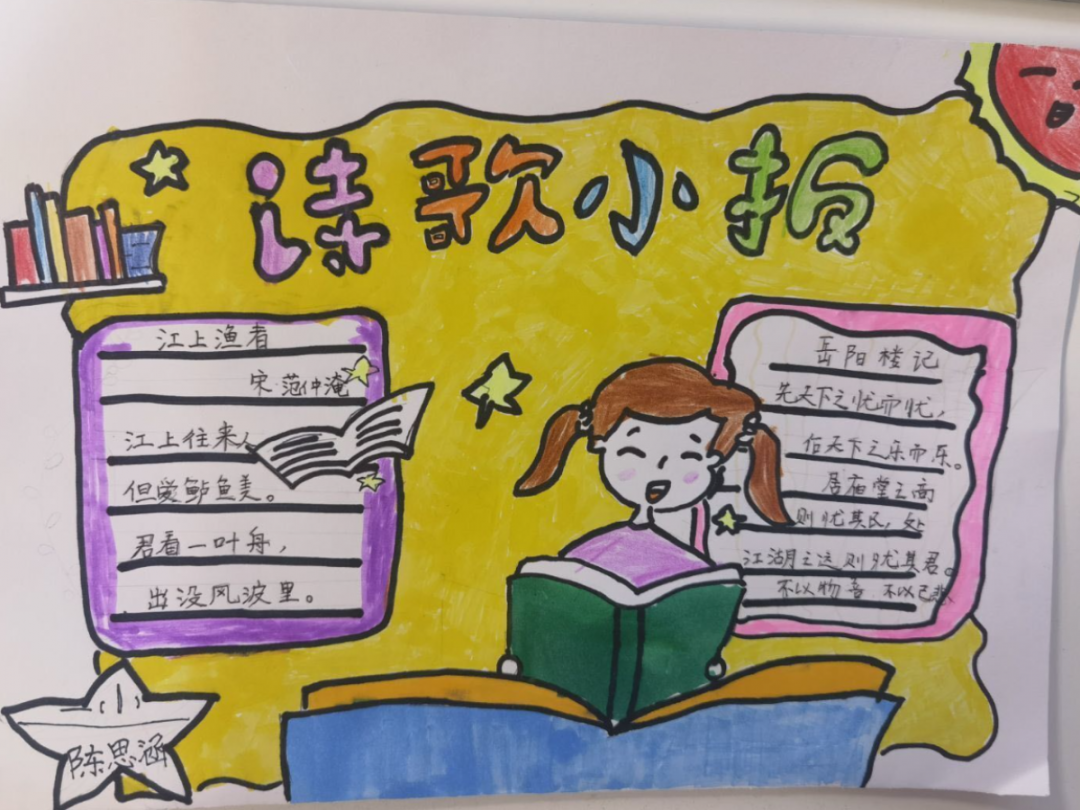 诗歌小报
江上渔者
宋·范仲淹
江上往来人
但爱鲈鱼美。
君看一叶舟，
出没风波里。
岳阳楼记
先天下之忧而忧，
后天下之乐而乐。
居庙堂之高
则忧其民，处
江湖之远则忧其君。
不以物喜 不以己悲
陈思涵